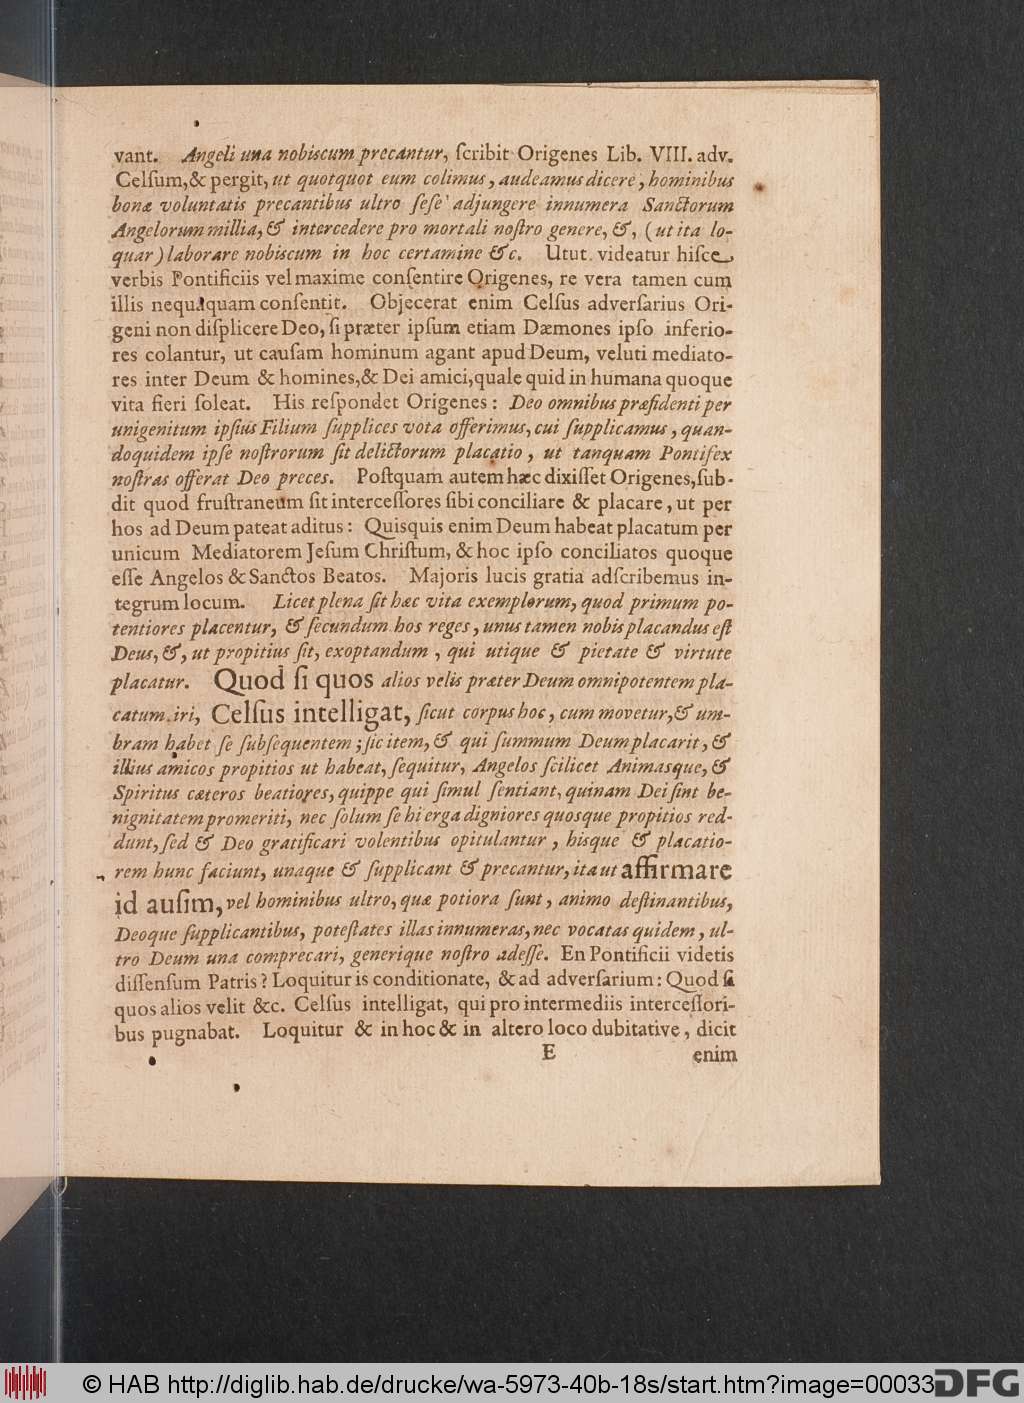 vant. Angeli una nobiscum precantur, ſcribit Origenes Lib. VIII. adv.
Celſum, & pergit, ut quotquot eum colimus, audeamus dicere, hominibus
bonæ voluntatis precantibus ultro ſeſe adjungere innumera Sanctorum
Angelorum millia, & intercedere pro mortali noſtro genere, &, (ut ita lo-
quar) laborare nobiscum in hoc certamine &c. Utut videatur hiſce
verbis Pontificiis vel maxime conſentire Origenes, re vera tamen cum
illis nequaquam conſentit. Objecerat enim Celſus adverſarius Ori-
geni non diſplicere Deo, ſi præter ipſum etiam Dæmones ipſo inferio-
res colantur, ut cauſam hominum agant apud Deum, veluti mediato-
res inter Deum & homines, & Dei amici, quale quid in humana quoque
vita fieri ſoleat. His reſpondet Origenes: Deo omnibus præſidenti per
unigenitum ipſius Filium ſupplices vota offerimus, cui ſupplicamus, quan-
doquidem ipſe noſtrorum ſit delictorum placatio, ut tanquam Pontifex
noſtras offerat Deo preces. Poſtquam autem hæc dixiſſet Origenes, ſub-
dit quod fruſtraneum ſit interceſſores ſibi conciliare & placare, ut per
hos ad Deum pateat aditus: Quisquis enim Deum habeat placatum per
unicum Mediatorem Jeſum Chriſtum, & hoc ipſo conciliatos quoque
eſſe Angelos & Sanctos Beatos. Majoris lucis gratia adſcribemus in-
tegrum locum. Licet plena ſit hæc vita exemplorum, quod primum po-
tentiores placentur, & ſecundum hos reges, unus tamen nobis placandus eſt
Deus, &, ut propitius ſit, exoptandum, qui utique & pietate & virtute
placatur. Quod ſi quos alios velis præter Deum omnipotentem pla-
catum iri, Celſus intelligat, ſicut corpus hoc, cum movetur, & um-
bram habet ſe ſubſequentem; ſic item, & qui ſummum Deum placarit, &
illius amicos propitios ut habeat, ſequitur, Angelos ſcilicet Animasque, &
Spiritus cæteros beatiores, quippe qui ſimul ſentiant, quinam Dei ſint be-
nignitatem promeriti, nec ſolum ſe hi erga digniores quosque propitios red-
dunt, ſed & Deo gratificari volentibus opitulantur, hisque & placatio-
rem hunc faciunt, unaque & ſupplicant & precantur, ita ut affirmare
id auſim, vel hominibus ultro, quæ potiora ſunt, animo deſtinantibus,
Deoque ſupplicantibus, poteſtates illas innumeras, nec vocatas quidem, ul-
tro Deum una comprecari, generique noſtro adeſſe. En Pontificii videtis
diſſenſum Patris? Loquitur is conditionate, & ad adverſarium: Quod ſi
quos alios velit &c. Celſus intelligat, qui pro intermediis interceſſori-
bus pugnabat. Loquitur & in hoc & in altero loco dubitative, dicit
E enim
© HAB http://diglib.hab.de/drucke/wa-5973-40b-18s/start.htm?image=00033
DFG